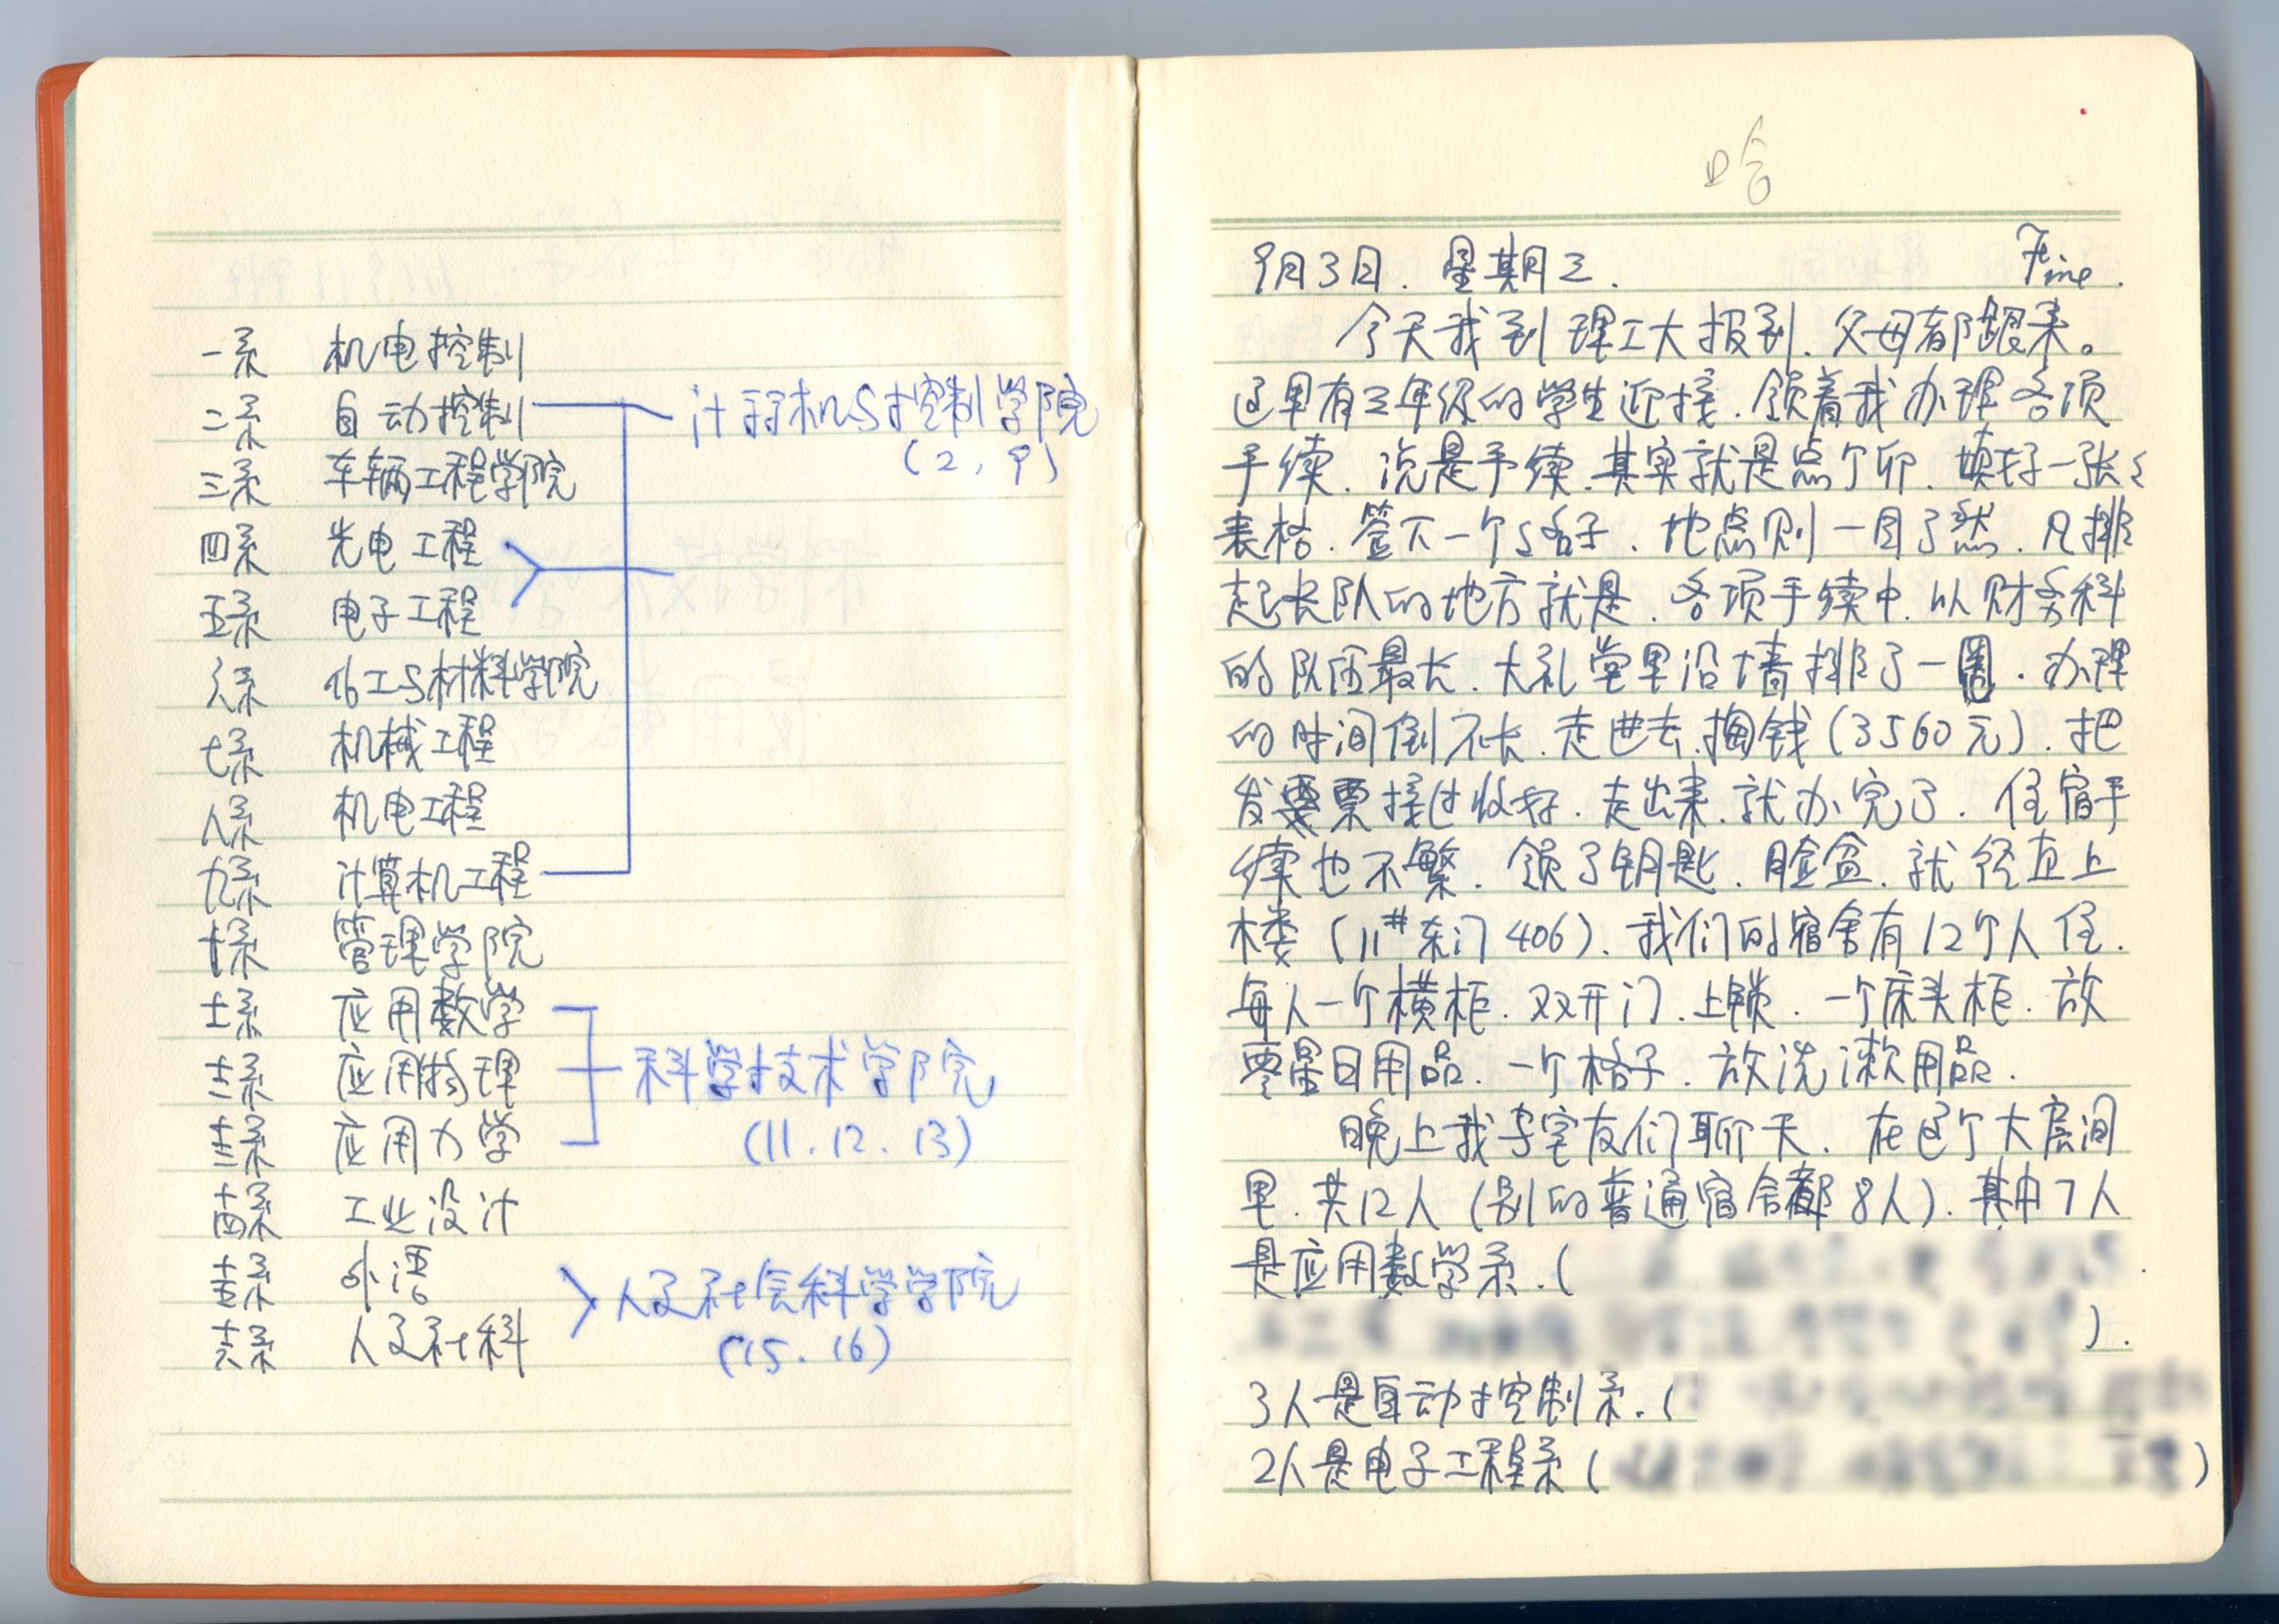 一系 机电控制
二系 自动控制
计算机与控制学院
(2, 9)
三系 车辆工程学院
四系 光电工程
五系 电子工程
六系 化工与材料科学学院
七系 机械工程
八系 机电工程
九系 计算机工程
十系 管理学院
十一系 应用数学
十二系 应用物理
科学技术学院
十三系 应用力学
(11. 12. 13)
十四系 工业设计
十五系 外语
人文社会科学学院
十六系 人文社科
(15. 16)
哈
9月3日. 星期三. Fine.
今天我到理工大报到. 父母都跟来。
这里有三年级的学生迎接. 领着我办理各项
手续. 说是手续. 其实就是点个卯. 填好一张
表格. 签下一个名字. 地点则一目了然. 凡排
起长队的地方就是. 各项手续中. 以财务科
的队伍最长. 大礼堂里沿墙排了一圈. 办理
的时间倒不长. 走进去. 掏钱(3560元). 把
发票接过收好. 走出来. 就办完了. 住宿手
续也不繁. 领了钥匙. 脸盆. 就径直上
楼 (11# 东门 406). 我们的宿舍有12个人住.
每人一个横柜. 双开门. 上锁. 一个床头柜. 放
零星日用品. 一个格子. 放洗漱用品.
晚上我与室友们聊天. 在这个大房间
里. 共12人 (别的普通宿舍都8人). 其中7人
是应用数学系. (
).
3人是自动控制系. (
2人是电子工程系 ( )